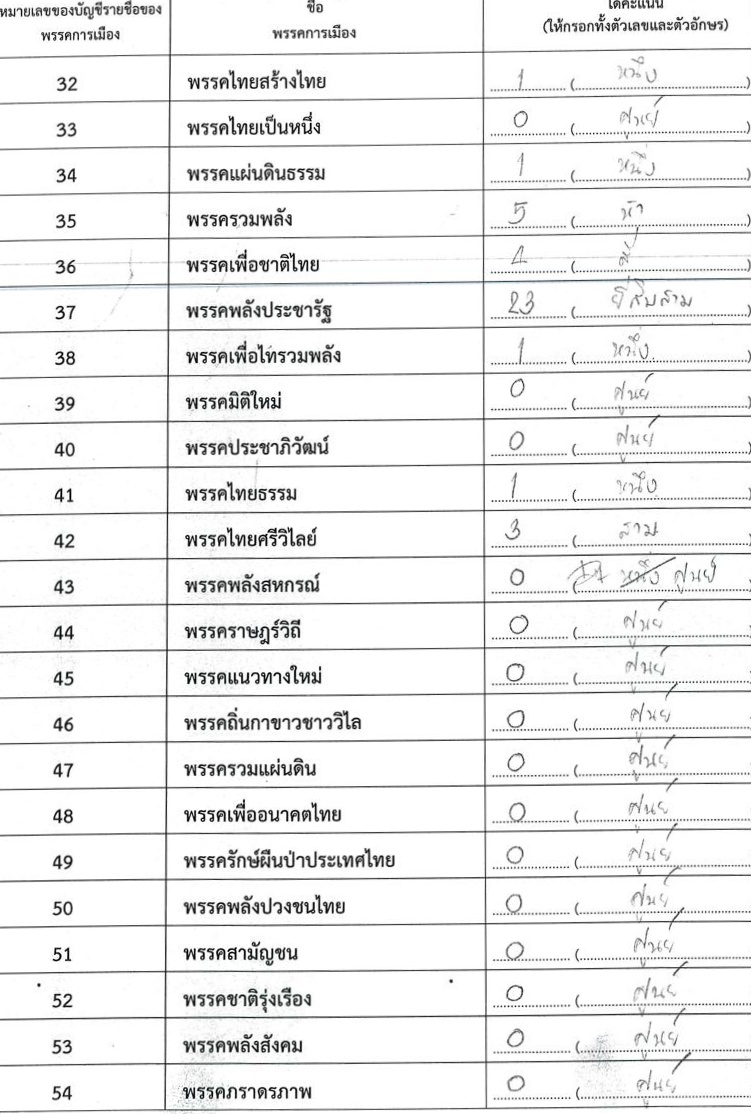 หมายเลขของบัญชีรายชื่อของ ชื่อ ได้คะแนน
พรรคการเมือง พรรคการเมือง (ให้กรอกทั้งตัวเลขและตัวอักษร)
32 พรรคไทยสร้างไทย 1 (หนึ่ง)
33 พรรคไทยเป็นหนึ่ง 0 (ศูนย์)
34 พรรคแผ่นดินธรรม 1 (หนึ่ง)
35 พรรครวมพลัง 5 (ห้า)
36 พรรคเพื่อชาติไทย 4 (สี่)
37 พรรคพลังประชารัฐ 23 (ยี่สิบสาม)
38 พรรคเพื่อไทรวมพลัง 1 (หนึ่ง)
39 พรรคมิติใหม่ 0 (ศูนย์)
40 พรรคประชาภิวัฒน์ 0 (ศูนย์)
41 พรรคไทยธรรม 1 (หนึ่ง)
42 พรรคไทยศรีวิไลย์ 3 (สาม)
43 พรรคพลังสหกรณ์ 0 (หนึ่ง ศูนย์
44 พรรคราษฎร์วิถี 0 (ศูนย์
45 พรรคแนวทางใหม่ 0 (ศูนย์
46 พรรคถิ่นกาขาวชาววิไล 0 (ศูนย์
47 พรรครวมแผ่นดิน 0 (ศูนย์
48 พรรคเพื่ออนาคตไทย 0 (ศูนย์
49 พรรครักษ์ผืนป่าประเทศไทย 0 (ศูนย์
50 พรรคพลังปวงชนไทย 0 (ศูนย์
51 พรรคสามัญชน 0 (ศูนย์
52 พรรคชาติรุ่งเรือง 0 (ศูนย์
53 พรรคพลังสังคม 0 (ศูนย์
54 พรรคภราดรภาพ 0 (ศูนย์